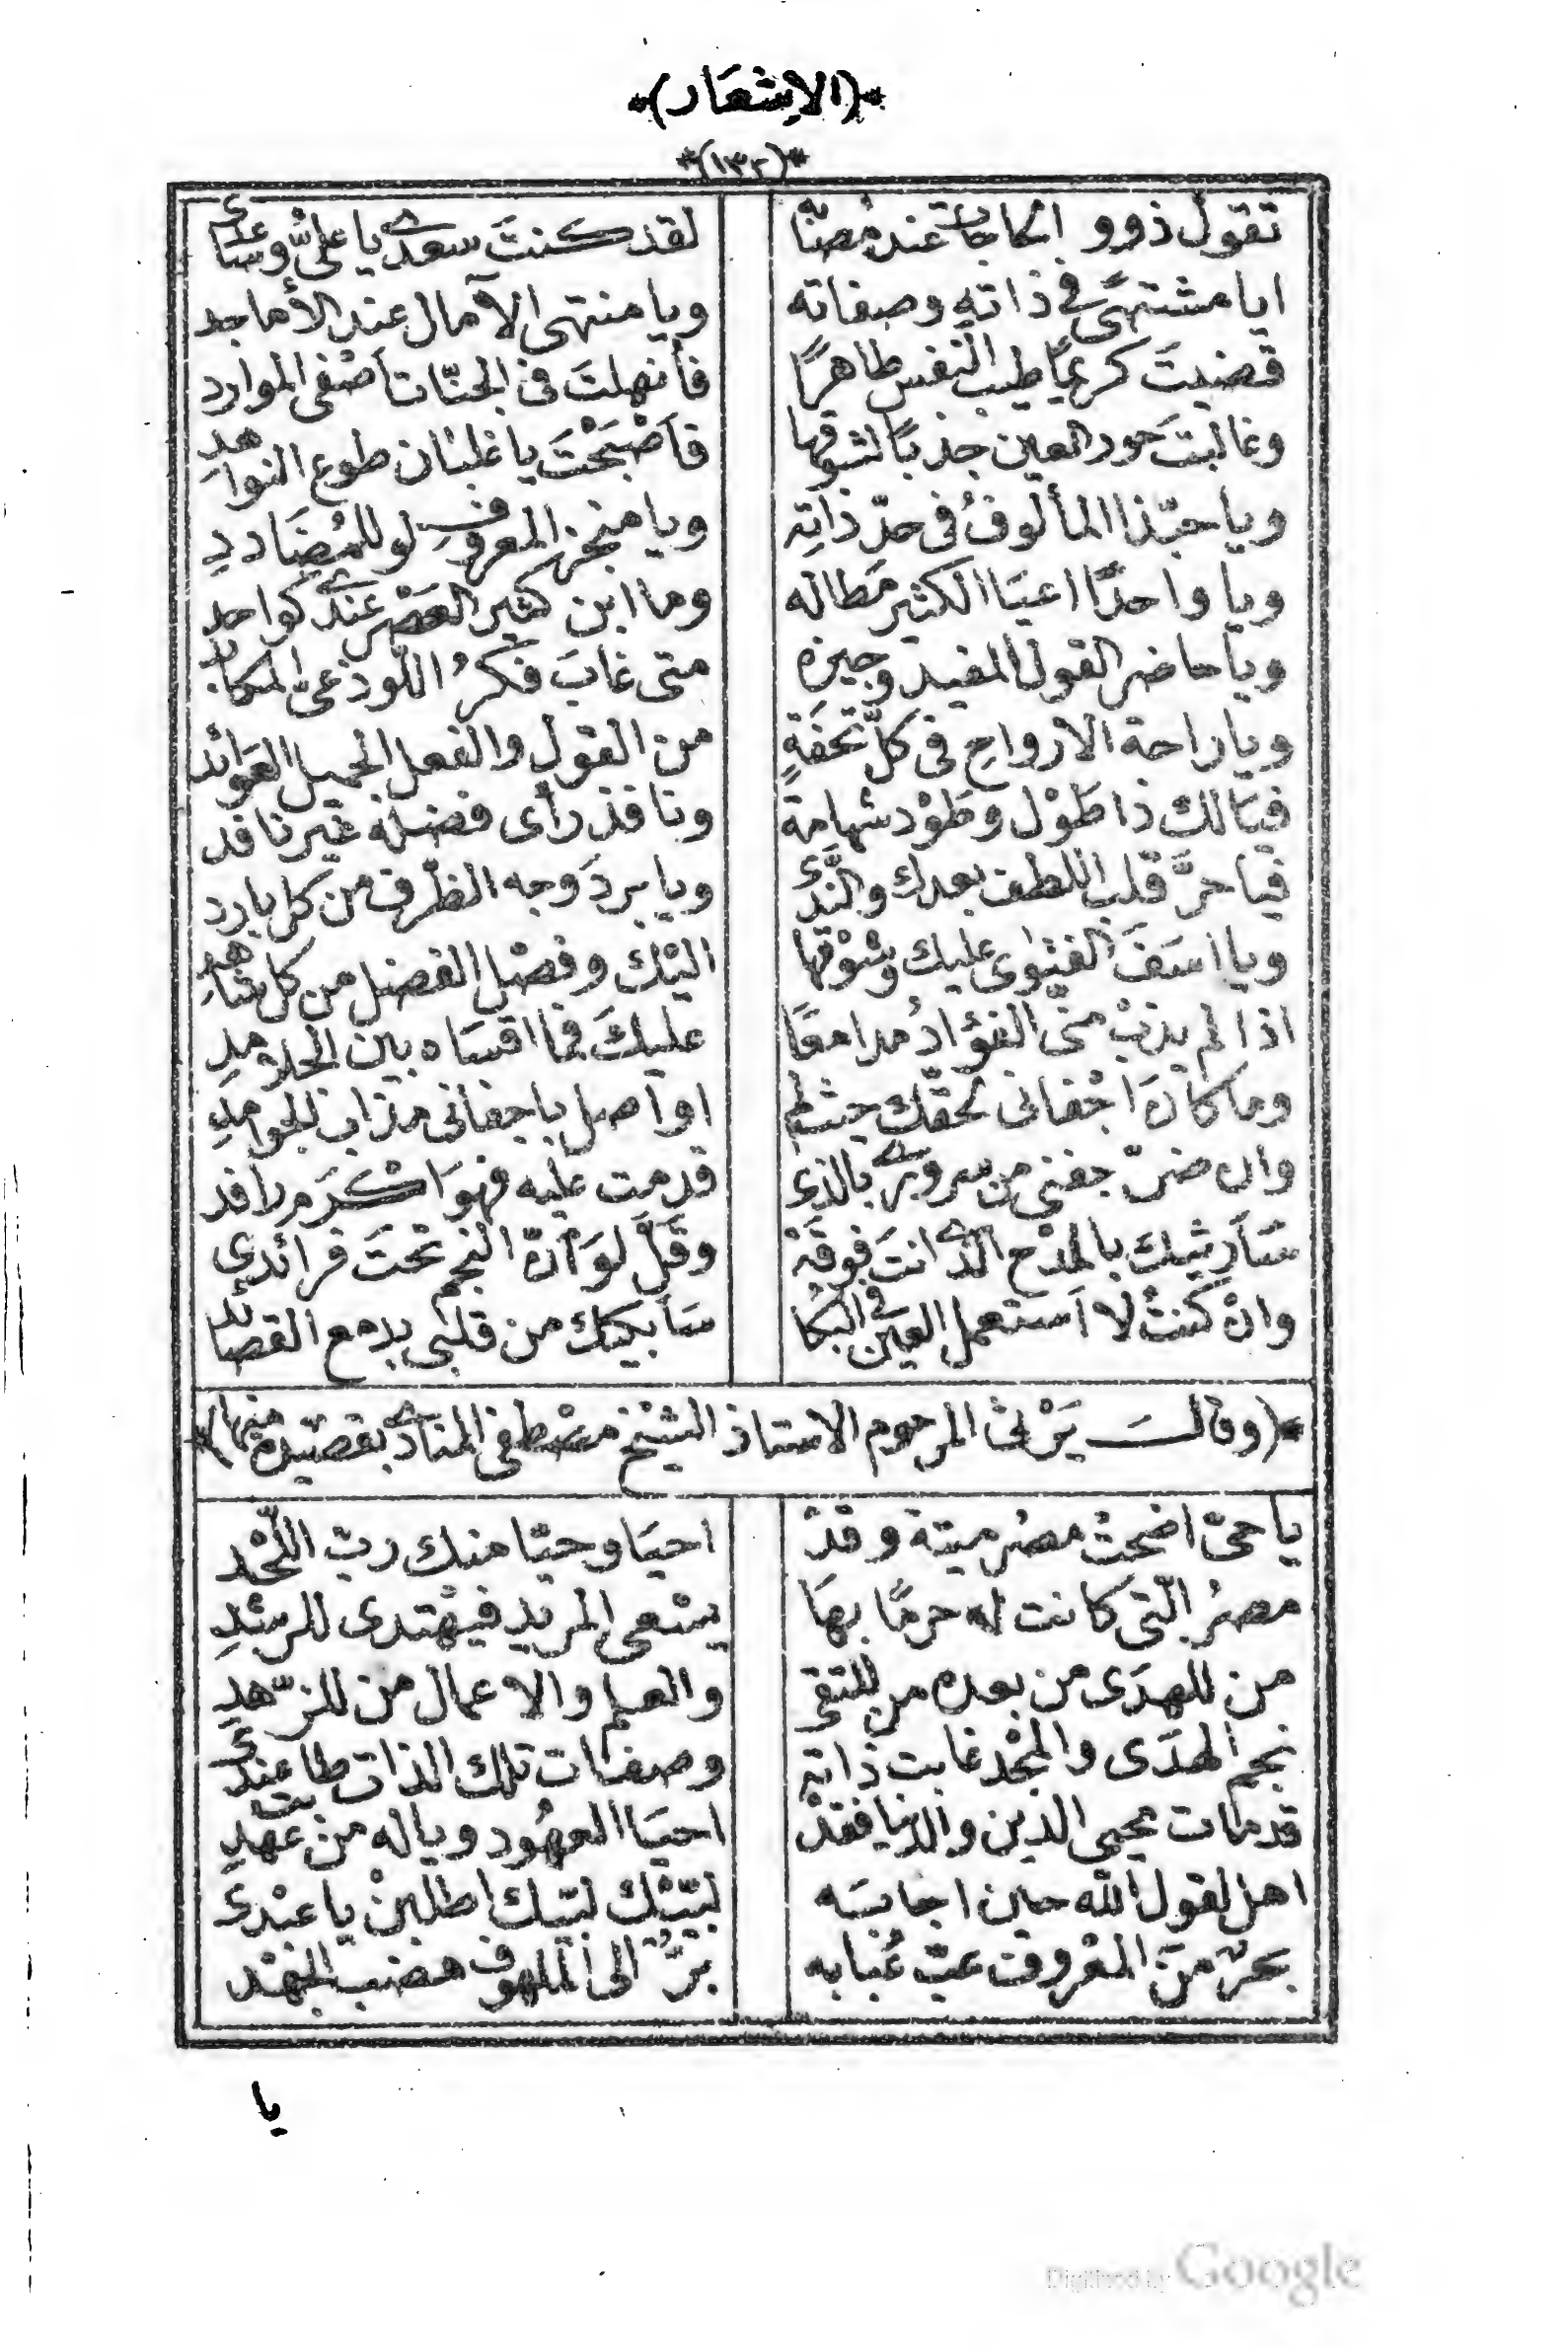 *(الاشعار)*
*(١٣٢)*
تقول ذوو الحاجات عند مُصَابه لقد كنتَ سعدى يا علىّ وساعدى
ايا مشتهىً فى ذاتهِ وصفاته ويا منتهى الآمال عند الأماجد
قضيتَ كريمًا طيب النفس طاهرًا فأنهلتَ فى الجنّات أصْفى الموارد
وغالبتَ حور العين جذبًا لشوقها فأصْبَحْتَ يا غلبان طوع النواهدِ
ويا حبّذا المألوفُ فى حدّ ذاتِه ويا منجز المعروفِ لو للمُضَاددِ
ويا واحدًا اعيَا الكثير مَطاله وما ابن كثير العَصْر عندى كواحد
ويا حاضر القول المفيد وجيزه متى غابَ فكرُ اللوذعىّ
ويا راحة الارواحِ فى كلّ تحفَةٍ من القول والفعل الجميل العَوائد
فيَالك ذا طَوْل وطَوْد شهامة ونافذ رأى فضله غير نافد
فيَا حرَّ قلب اللطف بعدك والنَّدَى ويا بردَ وجه الظّرف من كل بارد
ويا اسَفَ الفتوى عليك وشوْقها اليْك وفصْل الفضل من كل شاهدِ
اذا لم يذبْ منى الفؤادُ مدامعًا عليكَ فما اقسَاه بين الجلامدِ
وما كان اجْفانى بحقّك حيث لم اواصل باجفانى مذاب الجوامدِ
وان ضنّ جفنى من سرورى بالذى قدمت عليه فهوَ اكْرَم رافد
سَأرثيك بالمدْح الّذى انتَ فوقَهْ وقَلَّ لوَ انّ النجم تحْتَ فرائدى
وان كنتُ لا اَستعمل العين فى البكا سأبكيك من قلبى بدمع القصائد
*(وقالـ يَرْثى المرحوم الاستاذ الشيْخ مصْطفى المنادى بقصيدة منها)*
يا حىّ اضحتْ مصْر ميتة وقدْ احيَا وحيّا منك ربّ اللّحْد
مصرُ الّتى كانت له حرمًا بهَا يسْعى المريد فيهْتدى للرشْدِ
من للهدَى من بعده من للتقى والعلم والاعمال من للزّهدِ
نجم الهدَى والمجْد غابت ذاته وصفات تلك الذات طابت عندى
قد مات محيى الدين والدنيا فقدْ احيَا العهُود وياله من عَهْدِ
اهل لقول الله حين اجابَه لبّيْك لبّيك اطلبنْ يا عبْدى
بحرٌ منَ المعْروف عبّ عُبابه برٌّ الى الملهوف هضب النهْد
يا
Digitized by Google